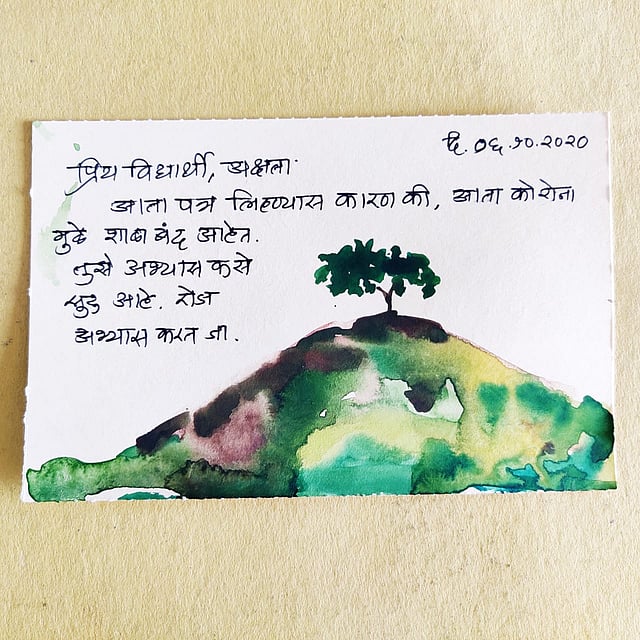 दि. ०६.१०.२०२०
प्रिय विद्यार्थी, अक्षता
आता पत्र लिहण्यास कारण की, आता कोरोना
मुळे शाळा बंद आहेत.
तुझे अभ्यास कसे
सुरु आहे. रोज
अभ्यास करत जा.